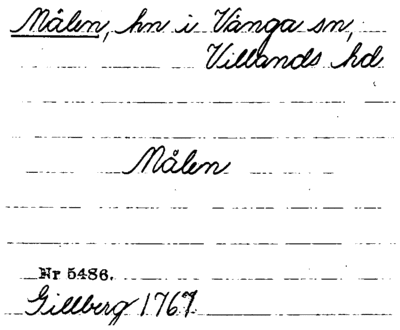 Målen, hn i Vånga sn,
Villands hd
Målen
Nr 5486.
Gillberg 1767